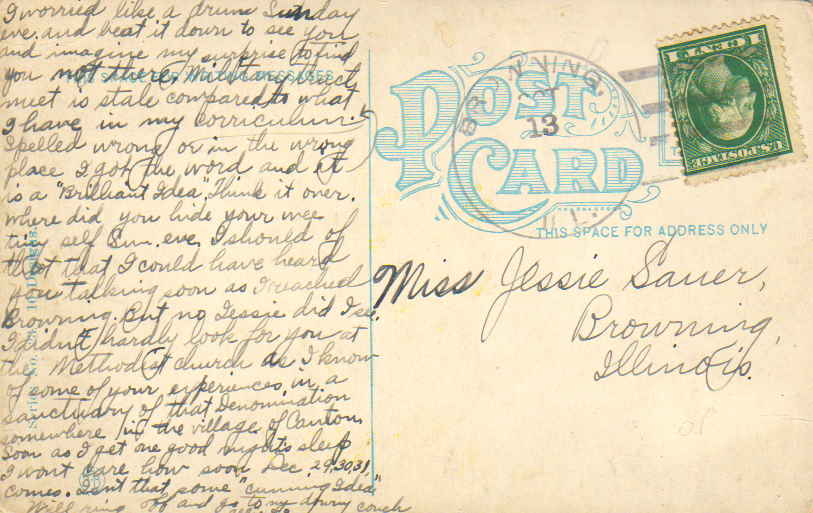 I worried like a drum Sunday
eve. and beat it down to see you
and imagine my surprise to find
you not there. Mildt
THIS SPACE FOR MESSAGES
meet is stale compared to what
I have in my corriculum:
Spelled wrong or in the wrong
place I got the word and it
is a "Brilliant Idea". Think it over.
Where did you hide your wee
tiny self Sun. eve, I should of
thot that I could have heard
you talking soon as I reached
Browning. But no Jessie did I see.
I didn't hardly look for you at
the Methodist church as I know
of some of your experiences in a
sanctuary of that Denomination
somewhere in the village of Canton.
Soon as I get one good night's sleep
I wont care how soon Dec 29, 30, 31,
comes. Isn't that some "cunning Idea"
Will ring off and go to my downy couch
Series No. Designs.
POST
CARD
BROWNING,
13
ILL.
1 CENT 1
U.S. POSTAGE
THIS SPACE FOR ADDRESS ONLY
Miss Jessie Sauer,
Browning,
Illinois.